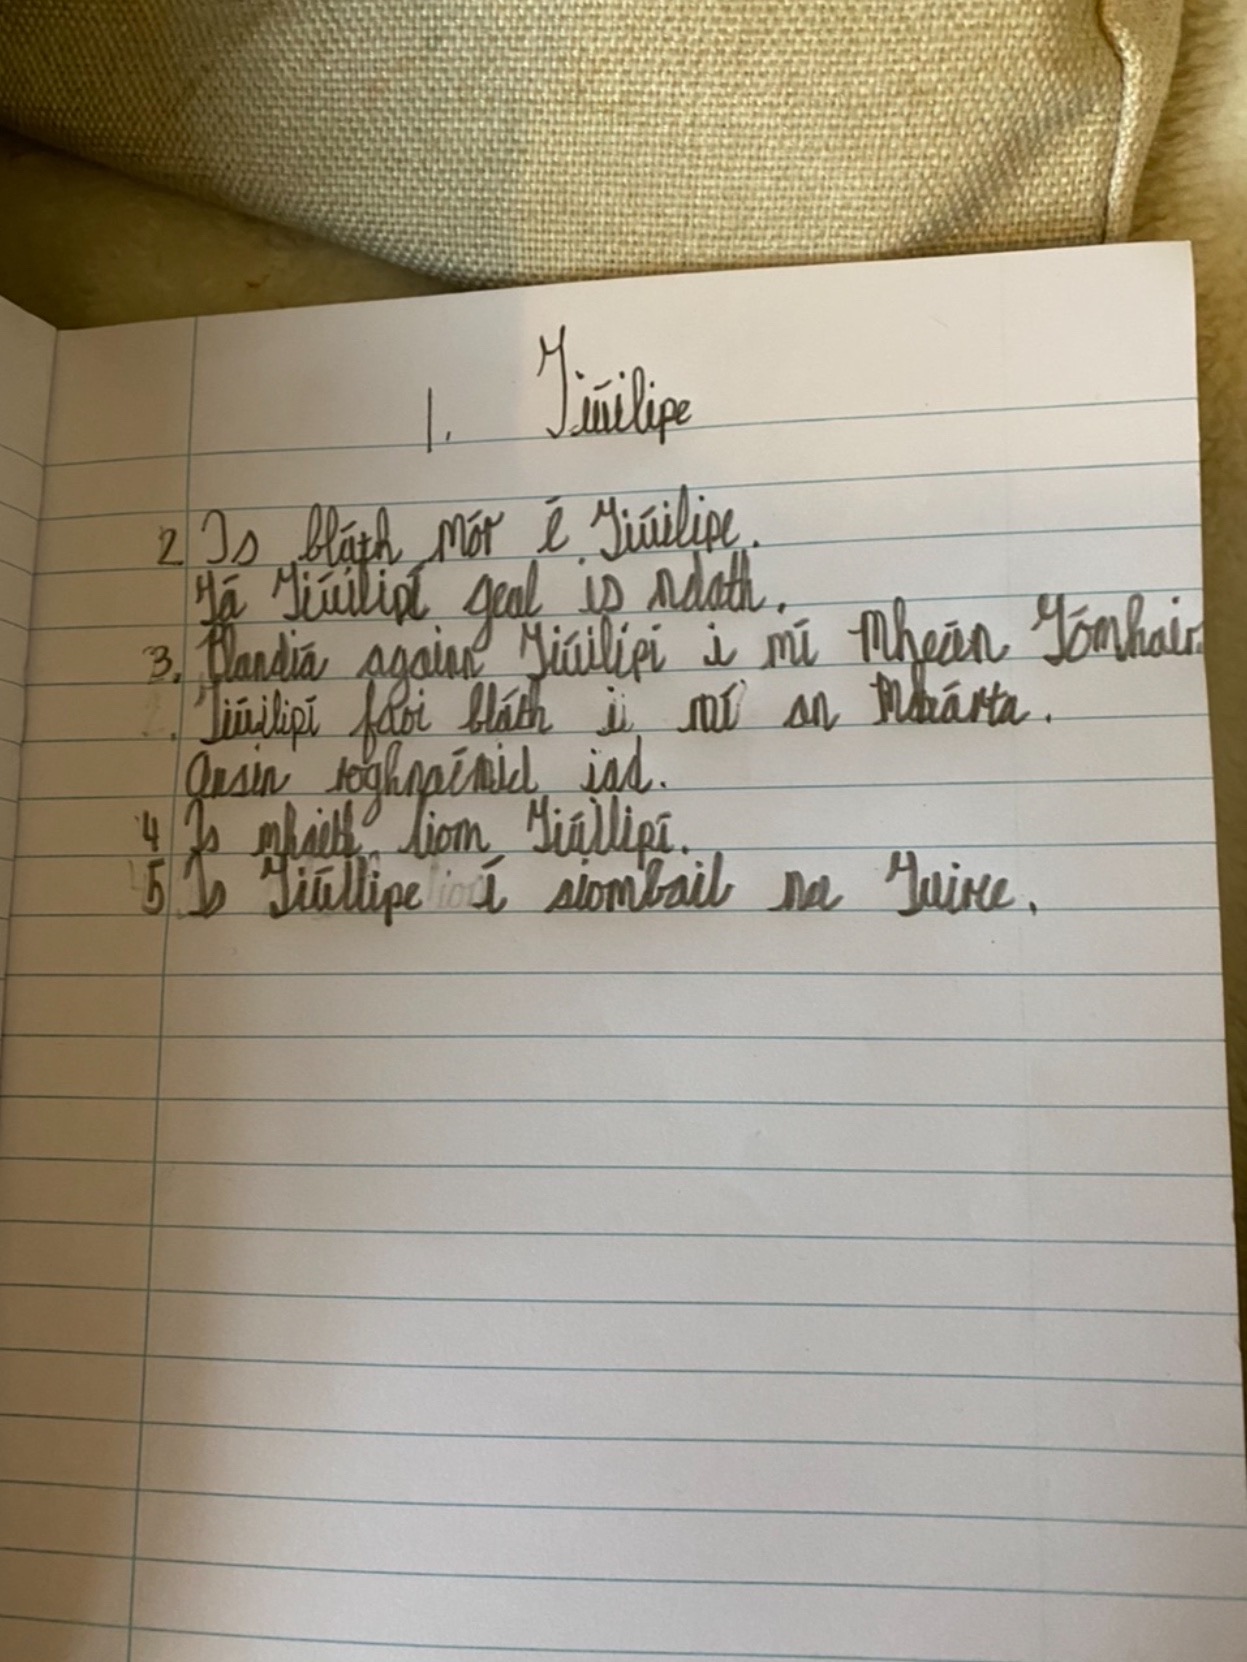 1. Tiúilipe
2 Is bláth mór é Tiúilipe.
Tá Tiúilipí geal is ndath.
3. Plandiá againn Tiúilípí i mí Mheán Tómhair.
Tiúilipí faoi bláth i mí an Márta.
Ansin roghnaímid iad.
4 Is mhaith liom Tiúllipí.
5 Is Tiúllipe í siombail na Tuirce.